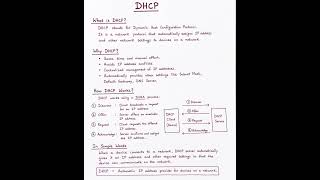 DHCP
What is DHCP?
DHCP stands for Dynamic Host Configuration Protocol.
It is a network protocol that automatically assigns IP address
and other network settings to devices on a network.
Why DHCP?
• Saves time and manual effort.
• Avoids IP address conflicts.
• Centralized management of IP addresses.
• Automatically provides other settings like Subnet Mask,
Default Gateway, DNS Server.
How DHCP Works?
DHCP works using a DORA process:
① Discover : Client broadcasts a request
for an IP address.
② Offer : Server offers an available
IP address.
③ Request : Client requests the offered
IP address.
④ Acknowledge : Server confirms and assigns
the IP address.
DHCP
Client
(Device)
① Discover
② Offer
③ Request
④ Acknowledge
DHCP
Server
In Simple Words
When a device connects to a network, DHCP server automatically
gives it an IP address and other required settings so that the device
can communicate on the network.
DHCP = Automatic IP address provider for devices on a network.